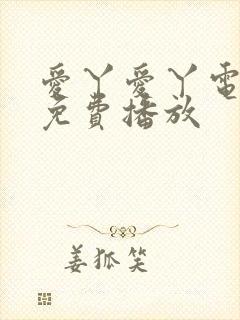 愛丫愛丫電
免費播放
姜狐笑